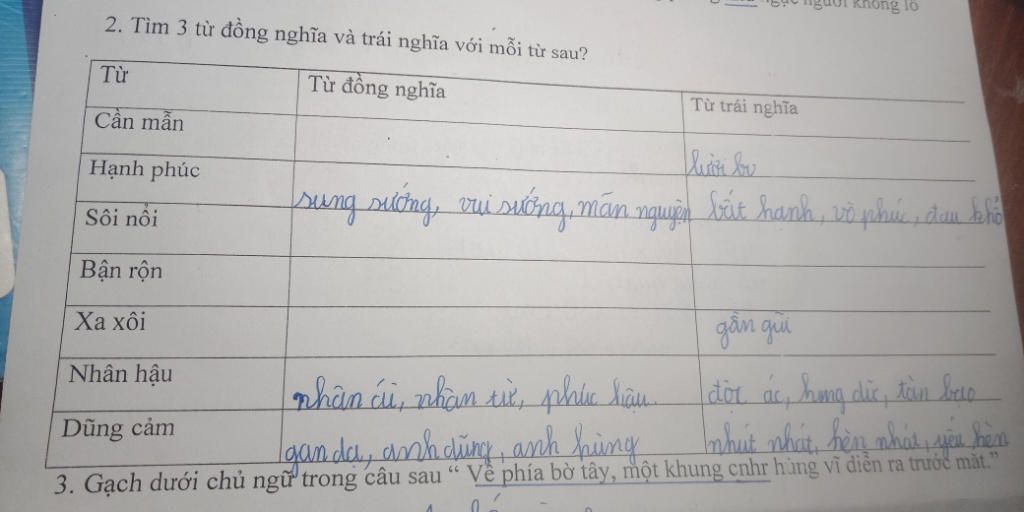 người không lồ
2. Tìm 3 từ đồng nghĩa và trái nghĩa với mỗi từ sau?
Từ Từ đồng nghĩa Từ trái nghĩa
Cần mẫn lười
Hạnh phúc sung sướng, vui sướng, mãn nguyện bất hạnh, vô phúc, đau khổ
Sôi nổi
Bận rộn
Xa xôi gần gũi
Nhân hậu nhân ái, nhân từ, phúc hậu. độc ác, hung dữ, tàn bạo
Dũng cảm gan dạ, anh dũng, anh hùng nhút nhát, hèn nhát, yếu hèn
3. Gạch dưới chủ ngữ trong câu sau “ Về phía bờ tây, một khung cnhr hùng vĩ diễn ra trước mắt.”